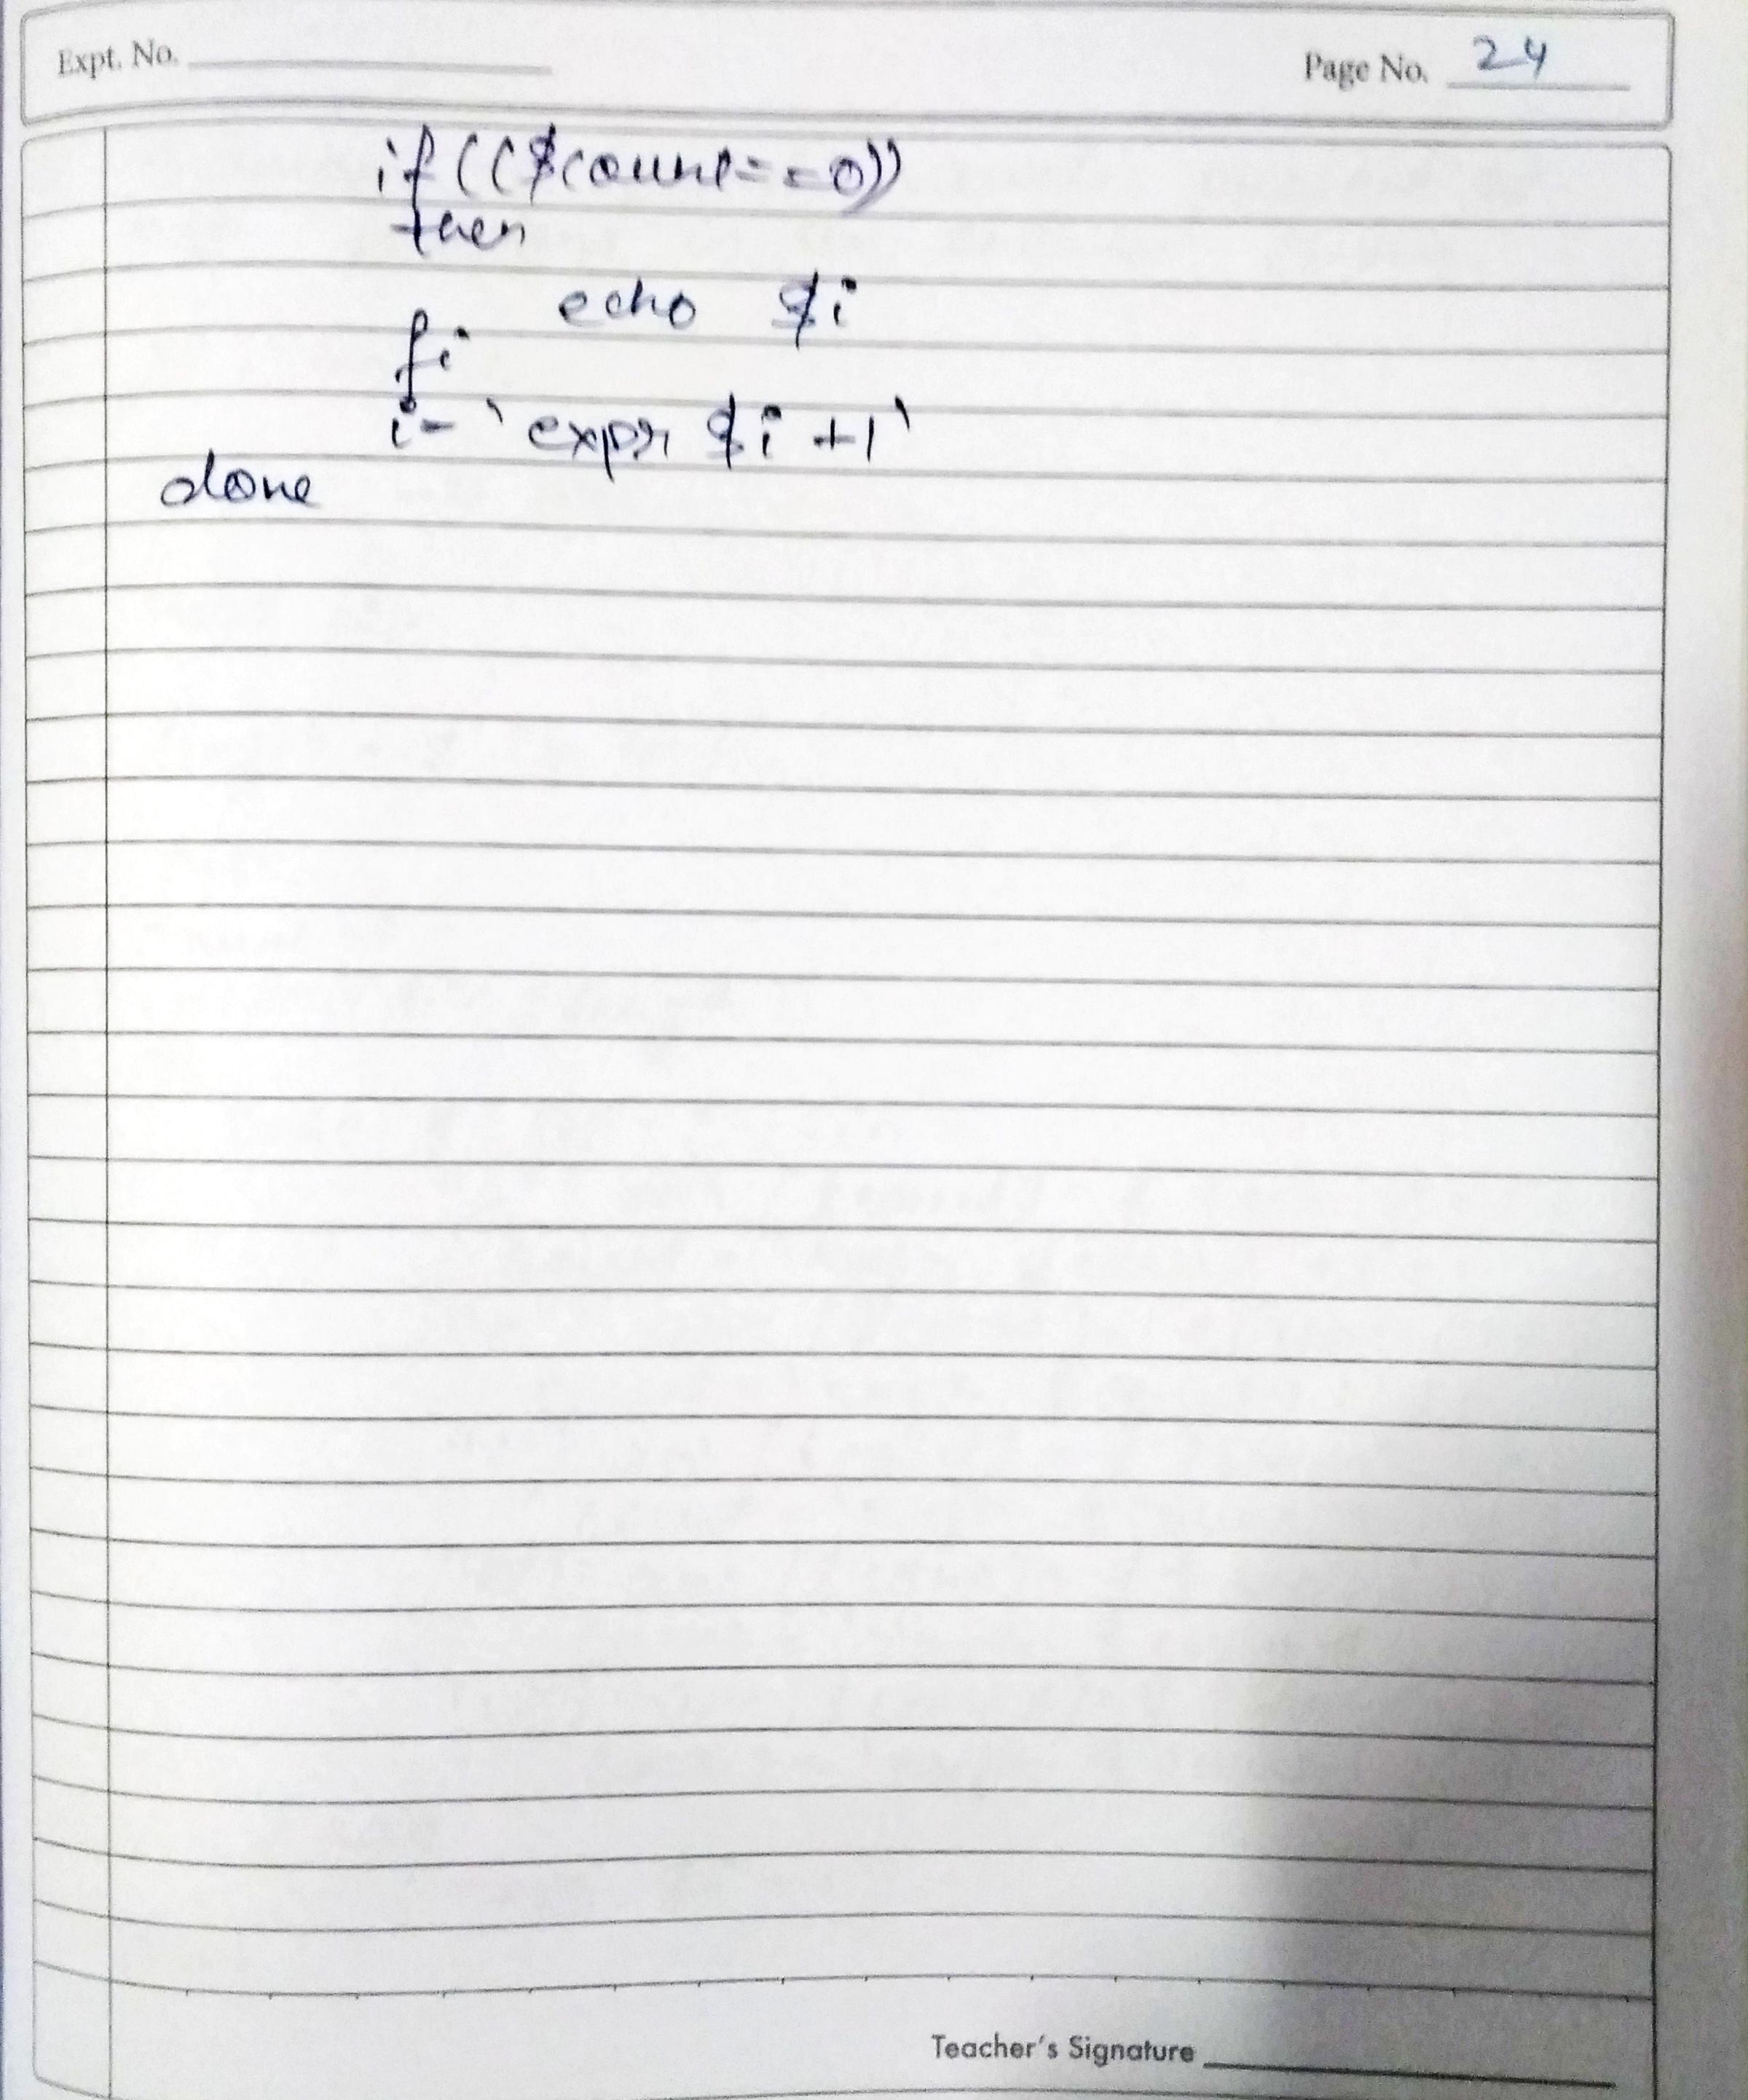 Expt. No.
Page No. 24
if (($count==0))
then
echo $i
fi
i=`expr $i +1`
done
Teacher's Signature